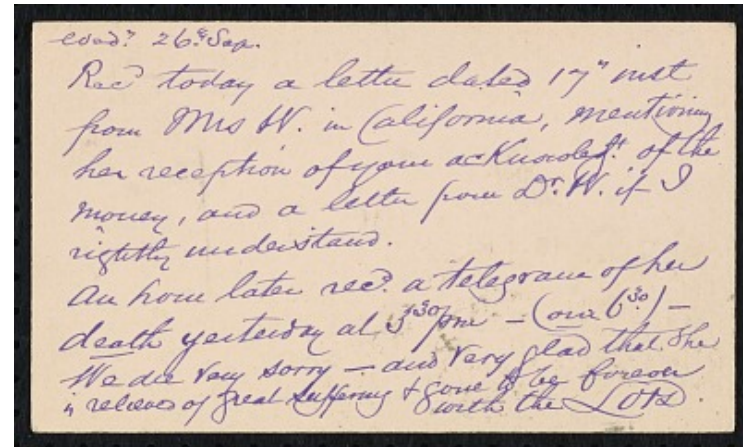 26th Sep.
Recd today a letter dated 17" inst
from Mrs W. in California, mentioning
her reception of your acknowledgt. of the
money, and a letter from Dr. W. if I
rightly understand.
An hour later recd. a telegram of her
death yesterday at 3 30 pm – (our 6 30) –
We are very sorry – and very glad that she
is relieved of great suffering & gone to be forever
with the Lord.